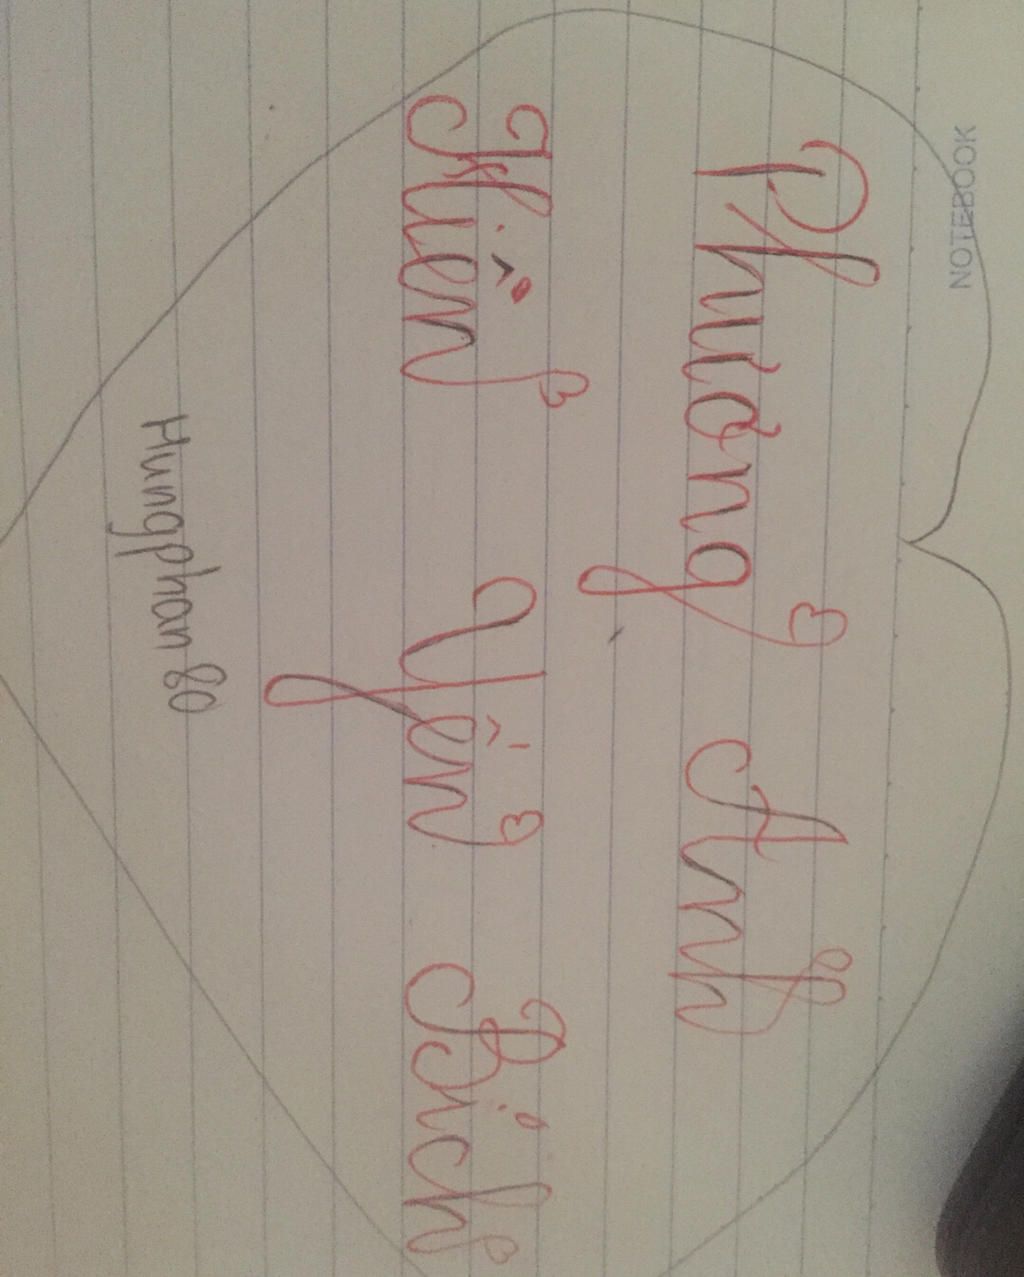 NOTEBOOK
Phương Anh
Hiền Yến Bích
Hungphan 80